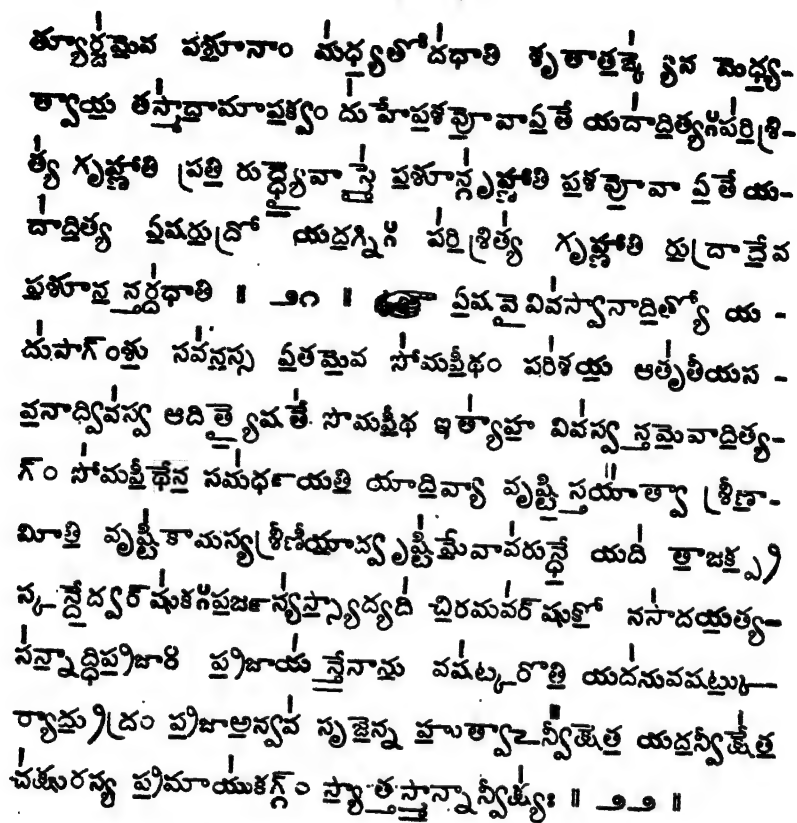 త్యూర్జ॑మైవ పశూ॒నాం మ॑ధ్య॒తోద॑ధాతి శృతాత॒ఙ్క్యే॑న మేధ్య॒-
త్వాయ॒ తస్మా॑దా॒మాప॒క్వం దు॑హే ప॒శవో॒వా ఏ॒తే యదా॑ది॒త్యఃప॑రి॒శ్రి-
త్య॑ గృహ్ణాతి ప్రతి॒ రుధ్యై॒వాస్మై॑ ప॒శూన్గృ॑హ్ణాతి ప॒శవో॒వా ఏ॒తేయ-
దా॑ది॒త్య ఏ॒షరు॒ద్రో యద॒గ్నిః ప॑రి॒శ్రిత్య॑ గృహ్ణాతి రు॒ద్రాదే॒వ
ప॒శూన॒న్తర్ద॑ధాతి ॥ ౨౧ ॥ ఏ॒షవై వివ॑స్వానాది॒త్యో య -
దు॑పాగ్ంశు॒ సవ॑న॒స్స ఏ॒తమే॒వ సో॑మపీ॒థం పరి॑శయ॒ ఆతృ॑తీయస -
వ॒నాద్వివ॑స్వ ఆదిత్యై॒షతే॑ సోమపీ॒థ ఇత్యా॑హ॒ వివ॑స్వన్తమే॒వాది॒త్య-
గ్ం సో॑మపీ॒థేన॒ సమ॑ర్ధయతి॒ యాది॒వ్యా వృష్టి॒స్తయా᳚త్వా శ్రీణా॒-
మీతి॒ వృష్టి॑కామస్యశ్రీణీయా॒ద్వృష్టి॑మే॒వావ॑రున్ధే॒ యది॑ తా॒జక్ప్ర॒
స్కన్దే॒ద్వర్‌షు॑కఃప॒ర్జన్య॑స్స్యా॒ద్యది॑ చి॒రమవ॑ర్‌షుకో॒ నసా॑దయ॒త్య-
స॑న్నా॒ద్ధిప్ర॒జాః ప్ర॒జాయ॑న్తే॒నాను॒ వష॑ట్కరోతి॒ యద॑నువషట్కు॒-
ర్యాద్రు॒ద్రం ప్ర॒జాఅ॒న్వవ॑ సృజే॒న్న హు॒త్వాఽన్వీ᳚క్షేత॒ యద॒న్వీక్షే॑త॒
చక్షు॑రస్య ప్ర॒మాయు॑కగ్గ్ం స్యా॒త్తస్మా॒న్నాన్వీక్ష్యః॑ ॥ ౨౨ ॥